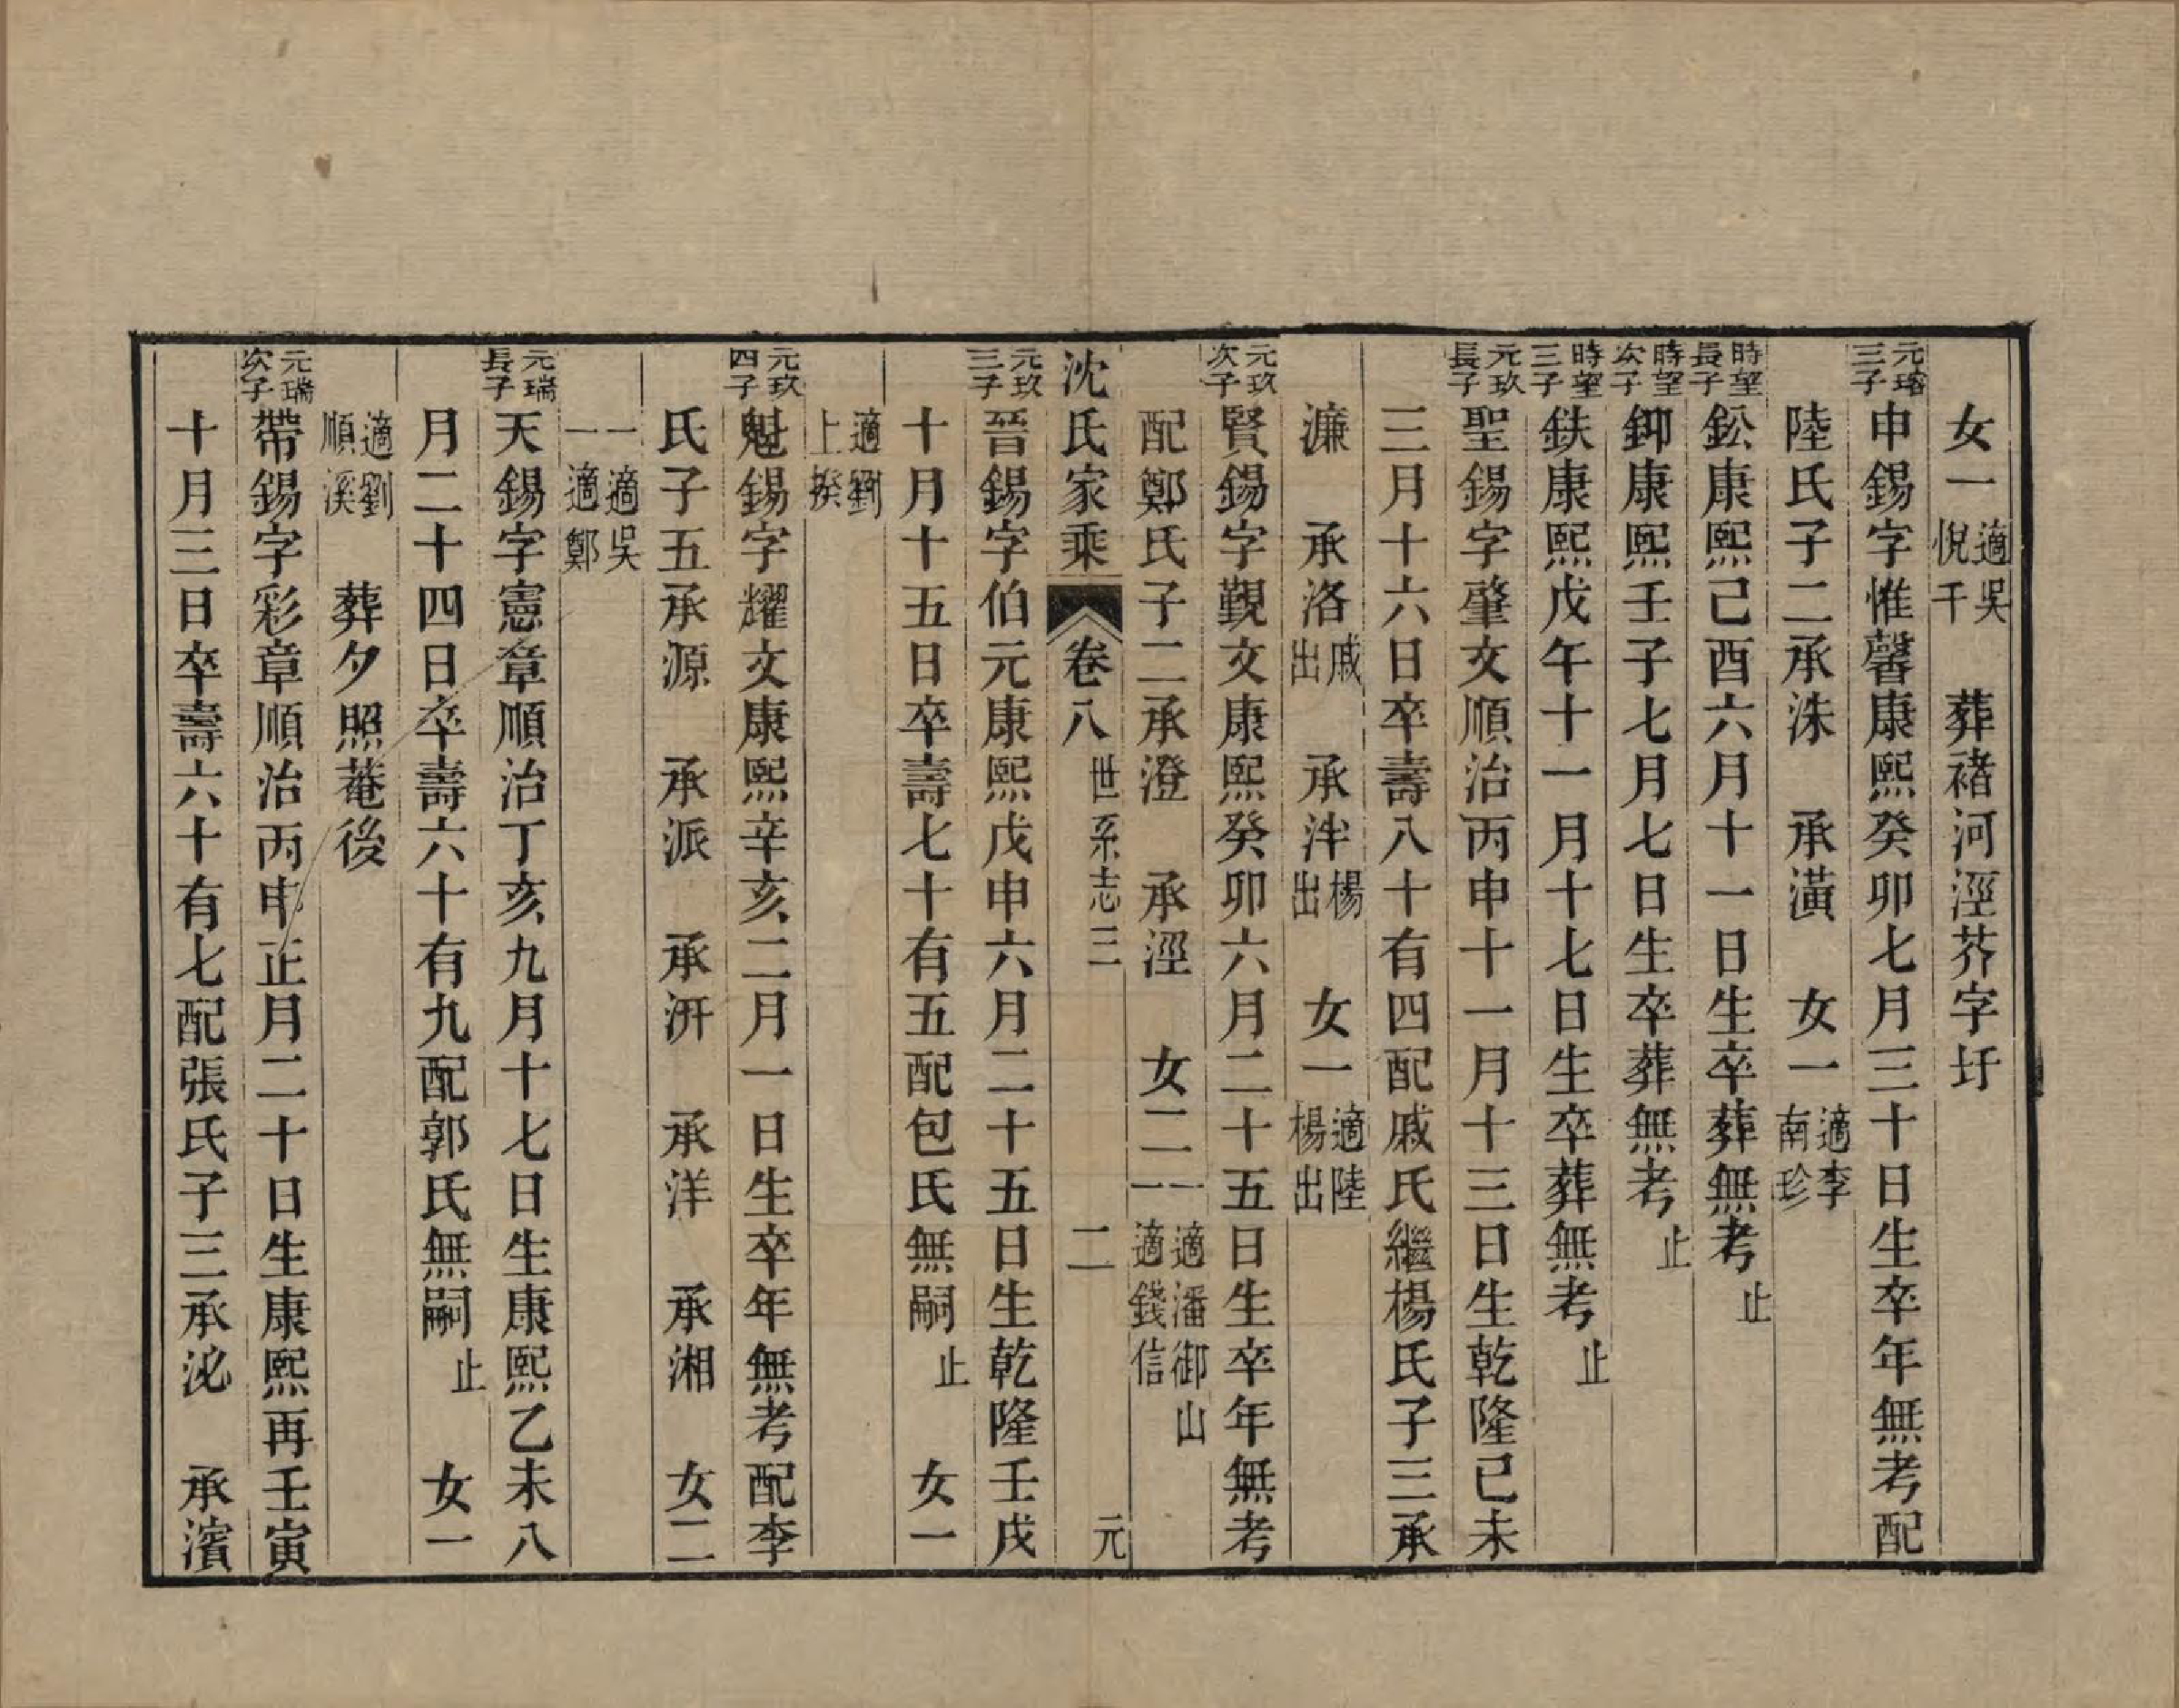 女一適吳悅千　葬褚河涇芥字圩
元瑢三子申錫字惟馨康熙癸卯七月三十日生卒年無考配
陸氏子二承洙　承潢　女一適李南珍
時望長子鈆康熙己酉六月十一日生卒葬無考止
時望次子鉚康熙壬子七月七日生卒葬無考止
時望三子鈇康熙戊午十一月十七日生卒葬無考止
元玖長子聖錫字肇文順治丙申十一月十三日生乾隆己未
三月十六日卒壽八十有四配戚氏繼楊氏子三承
濂　承洛戚出　承泮楊出　女一適陸楊出
元玖次子賢錫字覲文康熙癸卯六月二十五日生卒年無考
配鄭氏子二承澄　承涇　女二一適潘御山一適錢信
沈氏家乘　卷八　世系志三　二　元
元玖三子晉錫字伯元康熙戊申六月二十五日生乾隆壬戌
十月十五日卒壽七十有五配包氏無嗣止　女一
適劉上揆
元玖四子魁錫字耀文康熙辛亥二月一日生卒年無考配李
氏子五承源　承派　承汧　承洋　承湘　女二
一適吳一適鄭
元瑞長子天錫字憲章順治丁亥九月十七日生康熙乙未八
月二十四日卒壽六十有九配郭氏無嗣止　女一
適劉順溪　葬夕照菴後
元瑞次子帶錫字彩章順治丙申正月二十日生康熙再壬寅
十月三日卒壽六十有七配張氏子三承泌　承濱